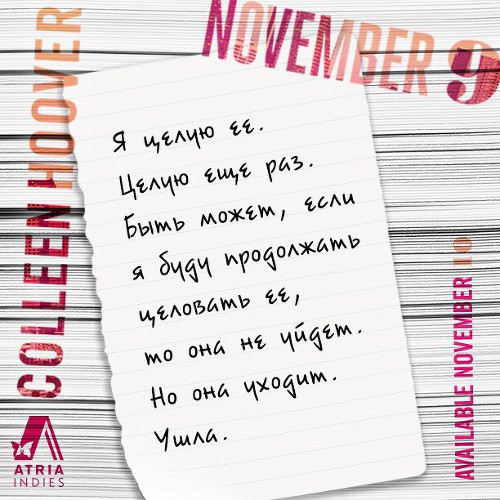 NOVEMBER 9
COLLEEN HOOVER
Я целую ее.
Целую еще раз.
Быть может, если
я буду продолжать
целовать ее,
то она не уйдет.
Но она уходит.
Ушла.
AVAILABLE NOVEMBER 10
ATRIA
INDIES